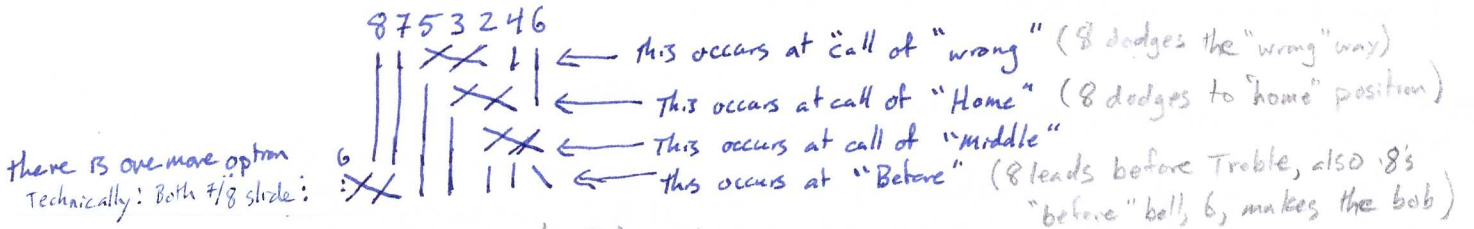 8 7 5 3 2 4 6
this occurs at call of "wrong" (8 dodges the "wrong" way)
This occurs at call of "Home" (8 dodges to "home" position)
This occurs at call of "middle"
there is one more option 6 this occurs at "Before" (8 leads before Treble, also 8's
Technically: Both 7/8 slide: "before" bell, 6, makes the bob)